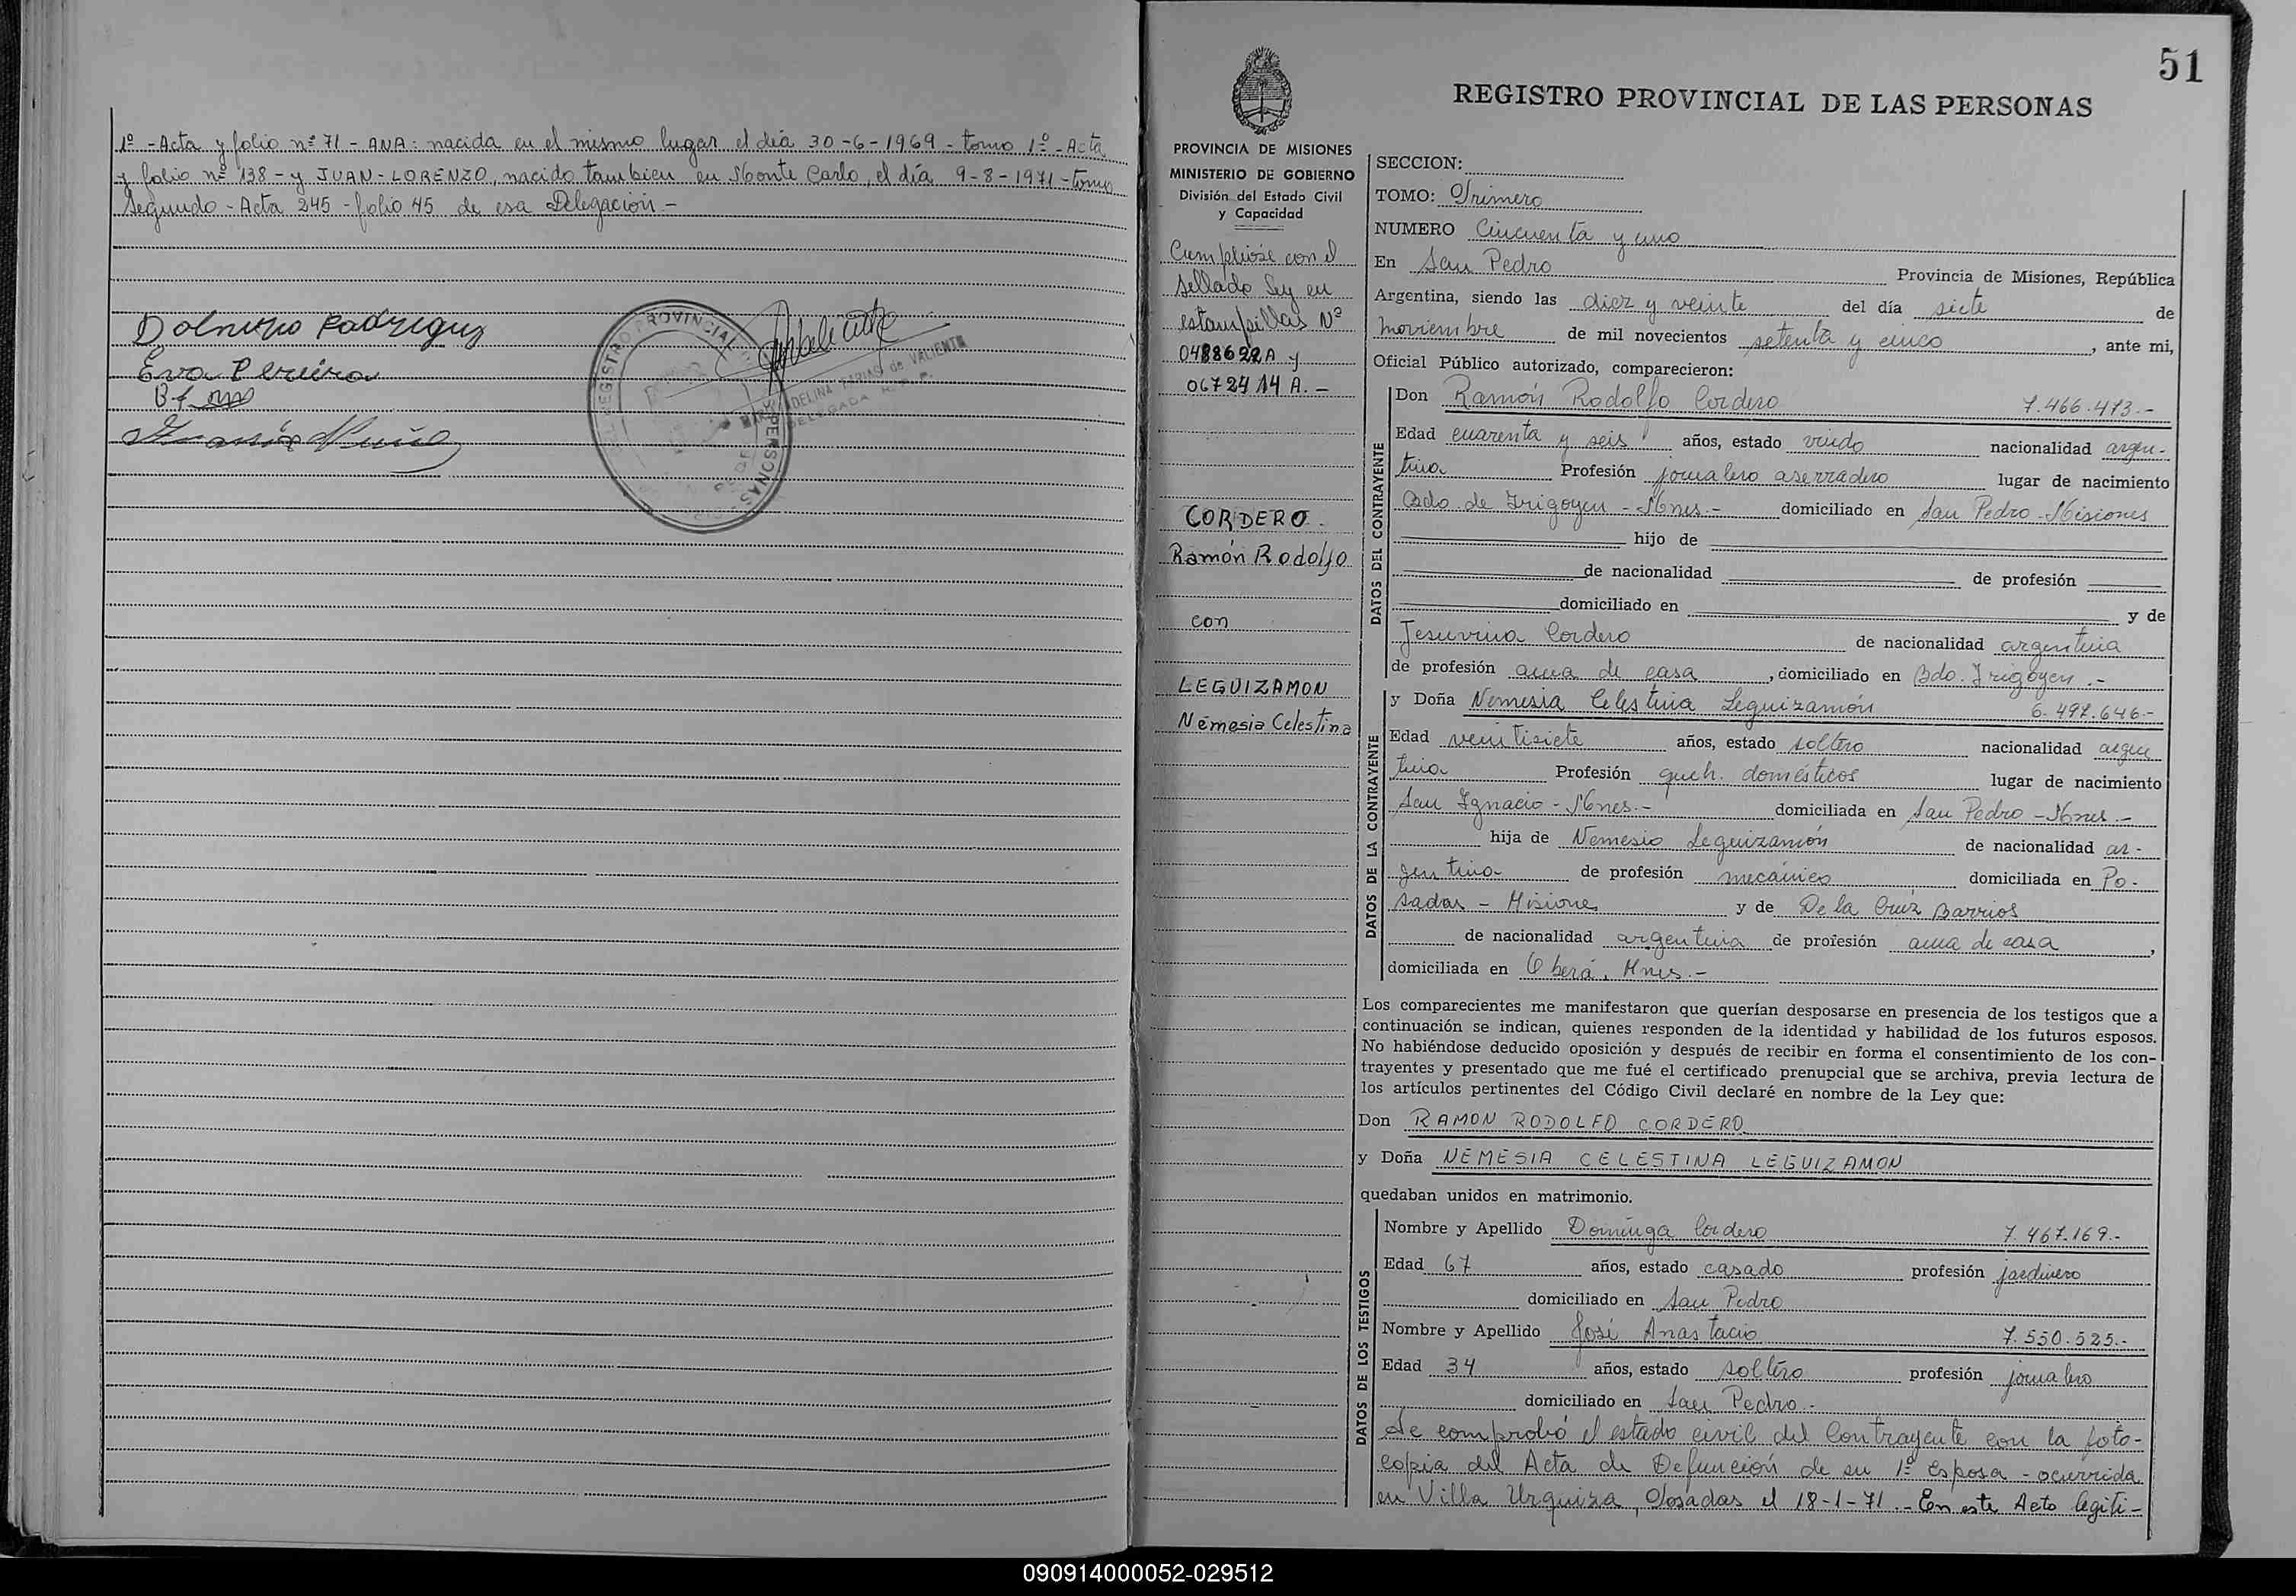 1º - Acta y folio nº 71 - ANA: nacida en el mismo lugar el día 30-6-1969 - tomo 1º - Acta
y folio nº 138 - y JUAN - LORENZO, nacido tambien en Monte Carlo, el día 9-8-1971 - tomo
Segundo - Acta 245 - folio 45 de esa Delegación -
Eva Pereira
REGISTRO PROVINCIAL
PERSONAS
51
REGISTRO PROVINCIAL DE LAS PERSONAS
PROVINCIA DE MISIONES
MINISTERIO DE GOBIERNO
División del Estado Civil
y Capacidad
Cumplióse con el
sellado Ley en
estampillas Nº
0488622A y
0672414 A. -
CORDERO.
Ramón Rodolfo
con
LEGUIZAMON
Nemesia Celestina
SECCION:
TOMO: Primero
NUMERO Cincuenta y uno
En San Pedro Provincia de Misiones, República
Argentina, siendo las diez y veinte del día siete de
noviembre de mil novecientos setenta y cinco, ante mi,
Oficial Público autorizado, comparecieron:
DATOS DEL CONTRAYENTE
Don Ramón Rodolfo Cordero 7.466.473.-
Edad cuarenta y seis años, estado viudo nacionalidad argen-
tina Profesión jornalero aserradero lugar de nacimiento
Bdo. de Irigoyen - Mnes.- domiciliado en San Pedro - Misiones
hijo de
de nacionalidad de profesión
domiciliado en y de
Jesuvina Cordero de nacionalidad argentina
de profesión ama de casa, domiciliado en Bdo. Irigoyen.-
DATOS DE LA CONTRAYENTE
y Doña Nemesia Celestina Leguizamón 6.497.646.-
Edad veintisiete años, estado soltero nacionalidad argen
tina Profesión queh. domésticos lugar de nacimiento
San Ignacio - Mnes.- domiciliada en San Pedro - Mnes.-
hija de Nemesio Leguizamón de nacionalidad ar-
gentina de profesión mecánico domiciliada en Po-
sadas - Misiones y de De la Cruz Barrios
de nacionalidad argentina de profesión ama de casa,
domiciliada en Oberá, Mnes.-
Los comparecientes me manifestaron que querían desposarse en presencia de los testigos que a
continuación se indican, quienes responden de la identidad y habilidad de los futuros esposos.
No habiéndose deducido oposición y después de recibir en forma el consentimiento de los con-
trayentes y presentado que me fué el certificado prenupcial que se archiva, previa lectura de
los artículos pertinentes del Código Civil declaré en nombre de la Ley que:
Don RAMON RODOLFO CORDERO
y Doña NEMESIA CELESTINA LEGUIZAMON
quedaban unidos en matrimonio.
DATOS DE LOS TESTIGOS
Nombre y Apellido Dominga Cordero 7.467.169.-
Edad 67 años, estado casado profesión jardinero
domiciliado en San Pedro
Nombre y Apellido José Anastacio 7.550.525.-
Edad 34 años, estado soltero profesión jornalero
domiciliado en San Pedro -
Se comprobó el estado civil del Contrayente con la foto-
copia del Acta de Defunción de su 1º Esposa - ocurrida
en Villa Urquiza, Posadas el 18-1-71.- En este Acto legiti-
090914000052-029512